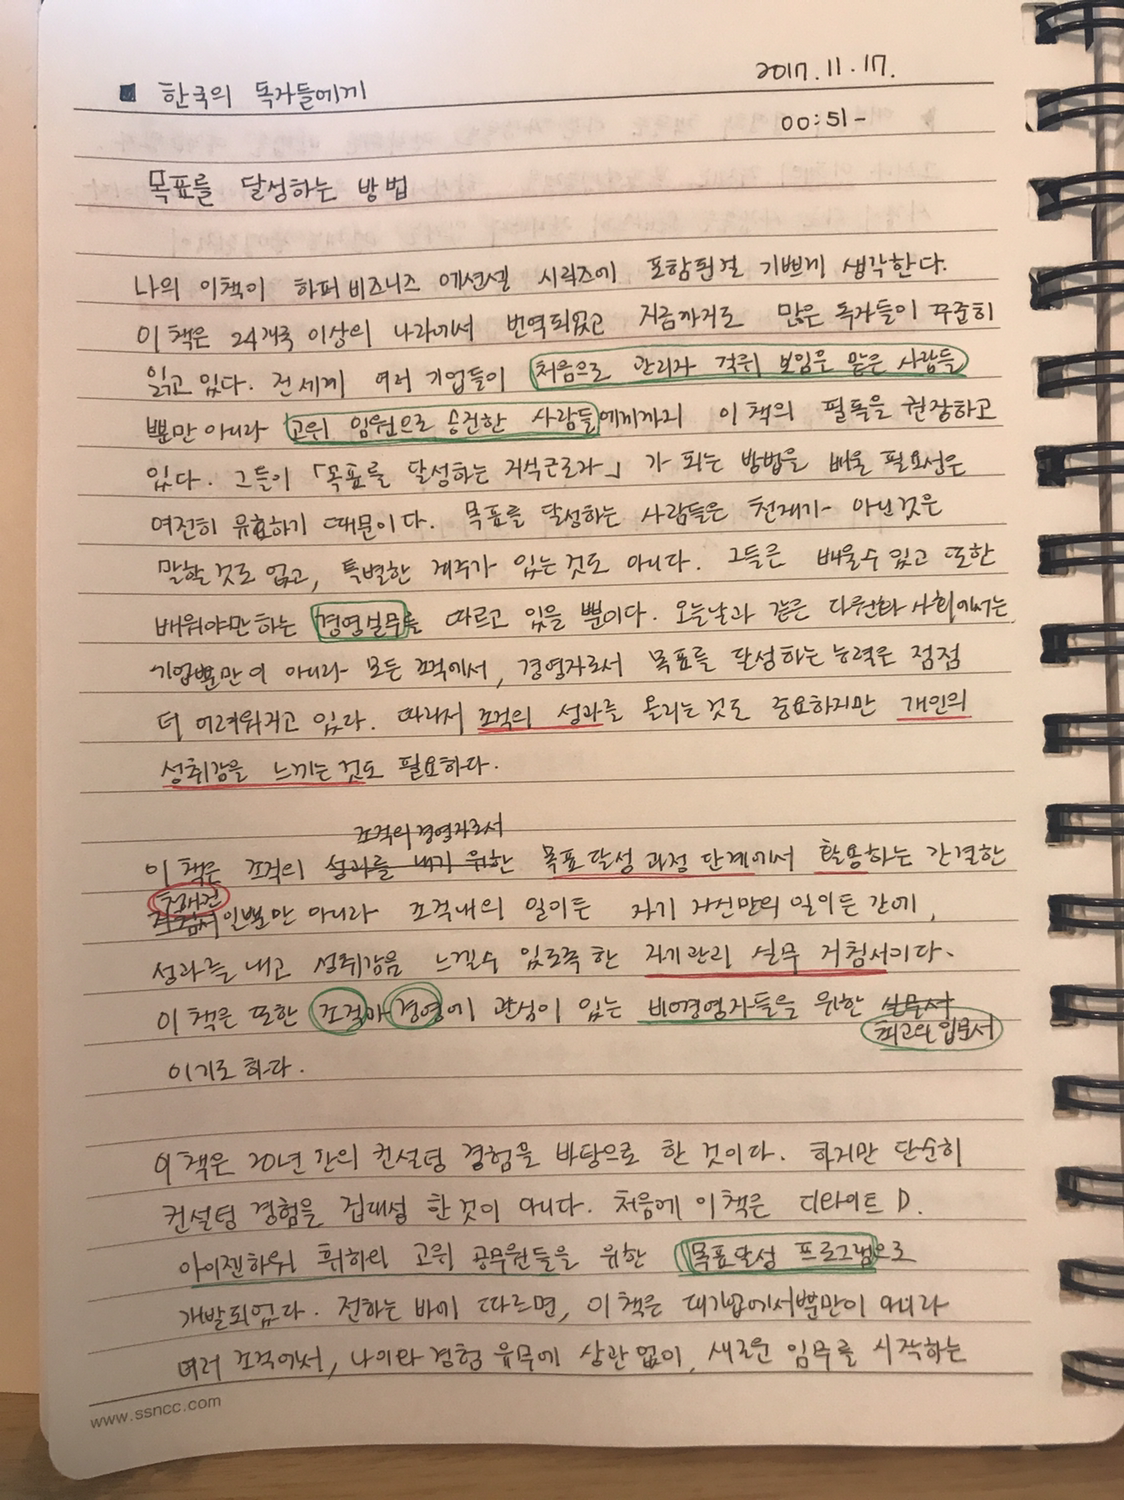 ■ 한국의 독자들에게
2017.11.17.
00:51-
목표를 달성하는 방법
나의 이책이 하퍼비즈니즈 에센셜 시리즈에 포함된걸 기쁘게 생각한다.
이 책은 24개국 이상의 나라에서 번역되었고 지금까지도 많은 독자들이 꾸준히
읽고 있다. 전세계 여러 기업들이 처음으로 관리자 직위 보임을 맡은 사람들
뿐만 아니라 고위 임원으로 승진한 사람들에게까지 이 책의 필독을 권장하고
있다. 그들이 「목표를 달성하는 지식근로자」가 되는 방법을 배울 필요성은
여전히 유효하기 때문이다. 목표를 달성하는 사람들은 천재가 아닌것은
말할것도 없고, 특별한 재주가 있는것도 아니다. 그들은 배울수 있고 또한
배워야만하는 경영실무를 따르고 있을 뿐이다. 오늘날과 같은 다원화 사회에서는
기업뿐만이 아니라 모든 조직에서, 경영자로서 목표를 달성하는 능력은 점점
더 어려워지고 있다. 따라서 조직의 성과를 올리는것도 중요하지만 개인의
성취감을 느끼는것도 필요하다.
조직의 경영자로서
이 책은 조직의 성과를 내기 위한 목표달성 과정 단계에서 활용하는 간결한
인뿐만 아니라 조직내의 일이든 자기 자신만의 일이든 간에,
성과를 내고 성취감을 느낄수 있도록 한 자기관리 실무 지침서이다.
이 책은 또한 조직과 경영에 관심이 있는 비경영자들을 위한
최고의 입문서
이기도 하다.
이 책은 20년 간의 컨설팅 경험을 바탕으로 한 것이다. 하지만 단순히
컨설팅 경험을 집대성 한것이 아니다. 처음에 이책은 드와이트 D.
아이젠하워 휘하의 고위 공무원들을 위한 목표달성 프로그램으로
개발되었다. 전하는 바에 따르면, 이 책은 대기업에서뿐만이 아니라
여러 조직에서, 나이와 경험 유무에 상관 없이, 새로운 임무를 시작하는
www.ssncc.com